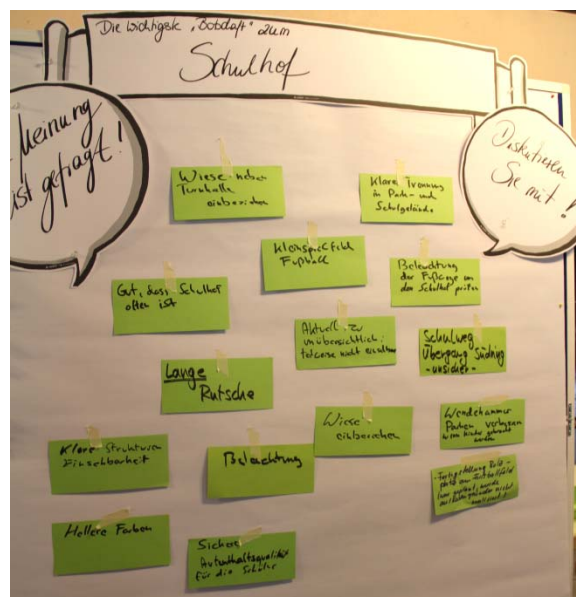 Die wichtigste „Botschaft" zum
Schulhof
Meinung
ist gefragt!
Diskutieren
Sie mit!
Wiese neben
Turnhalle
einbeziehen
Klare Trennung
in Park- und
Schulgelände
Kleinspielfeld
Fußball
Beleuchtung
der Fußwege um
den Schulhof prüfen
Gut, dass Schulhof
offen ist
Aktuell zu
unübersichtlich;
teilweise nicht einsehbar
Schulweg
Übergang Südring
-unsicher-
Lange
Rutsche
Wiese
einbeziehen
Wendehammer
Parken verlagern
wenn Kinder gebracht
werden
Klare Strukturen
Einsehbarkeit
Beleuchtung
- Fertigstellung
Hellere Farben
Sichere
Aufenthaltsqualität
für die Schüler